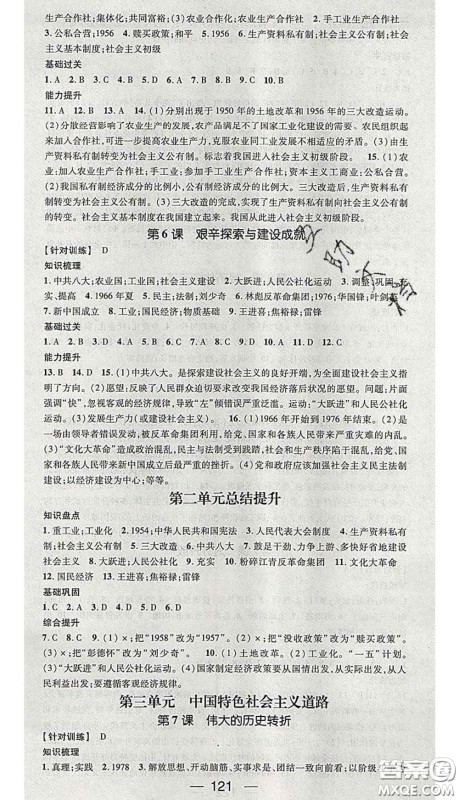 生产合作社;集体化;共同富裕;(3)农业合作化;农业生产合作社 2.手工业生产合作社
3.公私合营;1956 4.赎买政策;和平 5.1956 6.生产资料私有制;社会主义公有制;社会
主义基本制度;社会主义初级
基础过关
1.A 2.B 3.A 4.C 5.C 6.D 7.A 8.C 9.C 10.B
能力提升
11.A 12.B 13.A 14.(1)分别出现于 1950 年的土地改革和 1956 年的三大改造运动。
(2)分散经营影响了农业生产的发展,农产品满足不了国家工业化建设的需要、农民组织起
来加入合作社,可进一步提高农业生产力,克服农业同工业发展不适应的矛盾。(3)由生
产资料私有制转变为社会主义公有制。标志着我国进入社会主义初级阶段。 15.(1)农
业:加入农业生产合作社;手工业:参加手工业生产合作社;资本主义工商业:公私合营。
(2)我国私有制经济成分的比例小,公有制经济成分的比例大。三大改造后,生产资料私有
制转变为社会主义公有制。(3)三大改造的完成,实现了生产资料私有制向社会主义公有
制的转变,我国从此进入社会主义初级阶段。
第 6 课 艰辛探索与建设成就
【针对训练】 D
知识梳理
1.中共八大;农业国;工业国 2.大跃进;人民公社化运动 3.调整、巩固、充
实、提高 4.1966 年夏 5.民主;法制;刘少奇 6.林彪反革命集团;1976;华国锋;叶剑英
7.新中国成立 8.工业;国民经济;物质基础 9.王进喜;焦裕禄;雷锋
基础过关
1.B 2.D 3.A 4.A 5.A 6.C 7.B 8.A 9.C 10.B 11.D 12.D
能力提升
13.B 14.D 15.(1)中共八大。是探索建设社会主义的良好开端,为全面建设社会主义指
明了方向。(2)愿望:反映了人民群众迫切要求改变我国经济落后状况的愿望。问题:片面
强调“快”,忽视客观的经济规律,导致“左”倾错误严重泛滥。运动:“大跃进”和人民公社化
运动。(3)发展生产力(或建设社会主义)。 16.(1)1966 年开始,1976 年结束。(2)是
一场由领导者错误发动,被反革命集团利用,给党、国家和各族人民带来严重灾难的内乱。
(3)“文化大革命”造成政治混乱,民主与法制受到践踏,社会和生产秩序陷于混乱,给党、
国家和各族人民带来新中国成立后最严重的挫折。(4)党和政府应该加强社会主义民主法制
建设;以经济建设为中心;等等。
第二单元总结提升
知识盘点
1.重工业;工业化 2.1954;中华人民共和国宪法 3.人民代表大会制度 4.生产资料私有
制;社会主义公有制 5.三大改造 6.中共八大 7.鼓足干劲、力争上游、多快好省地建设
社会主义 8.大跃进;人民公社化 9.充实 10.粉碎江青反革命集团 11.文化大革命
12.国民经济 13.王进喜;焦裕禄;雷锋
基础巩固
1.C 2.A 3.D 4.B 5.D 6.D
综合提升
7.C 8.C 9.B 10.(1)×;把“1958”改为“1957”。(2)×;把“没收政策”改为“赎买政策”。
(3)×;把“彭德怀”改为“刘少奇”。 11.(1)土地改革。(2)三大改造。“一五”计划。
(3)“大跃进”和人民公社化运动。(4)国家制定经济政策要从国情出发,从实际出发,要遵循
经济规律,要尊重客观经济规律。
第三单元 中国特色社会主义道路
第 7 课 伟大的历史转折
【针对训练】 D
知识梳理
1.真理;实践 2.1978 3.解放思想、开动脑筋、实事求是、团结一致向前看;以阶级
121
答案圈
MXQE.COM